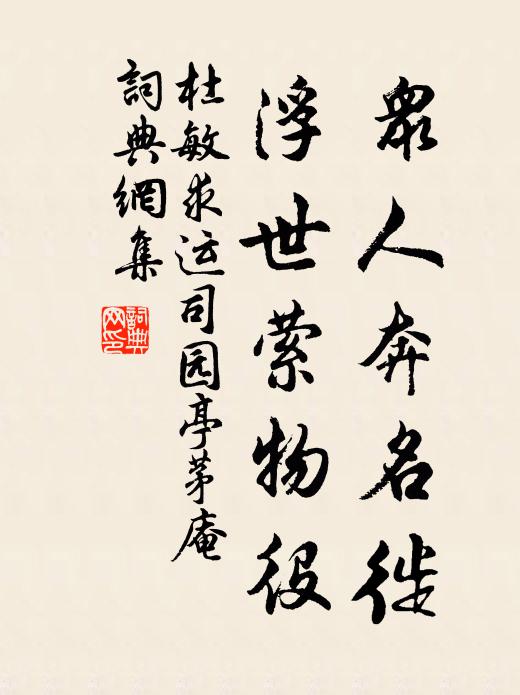 眾人奔名徙
浮世萦物役
杜敏求运司园亭茅庵
詞典網集
詞典网印